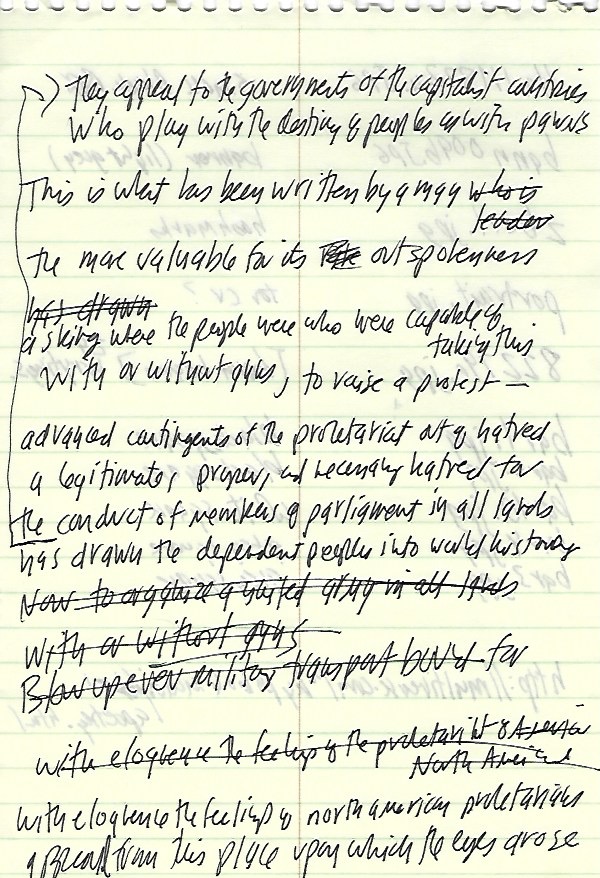 They appeal to the governments of the capitalist countries
who play with the destiny of peoples as with pawns
This is what has been written by a man who is
leader
the more valuable for its outspokenness
has drawn
asking where the people were who were capable of
taking this
with or without guns, to raise a protest —
advanced contingents of the proletariat out of hatred
a legitimate, proper, and necessary hatred for
the conduct of members of parliament in all lands
has drawn the dependent peoples into world history
Now to organize a united army in all lands
with or without guns
Blow up even military transport bound for
with eloquence the feelings of the proletariat of America
North American
with eloquence the feelings of north american proletarians
from this place upon which the eyes arose